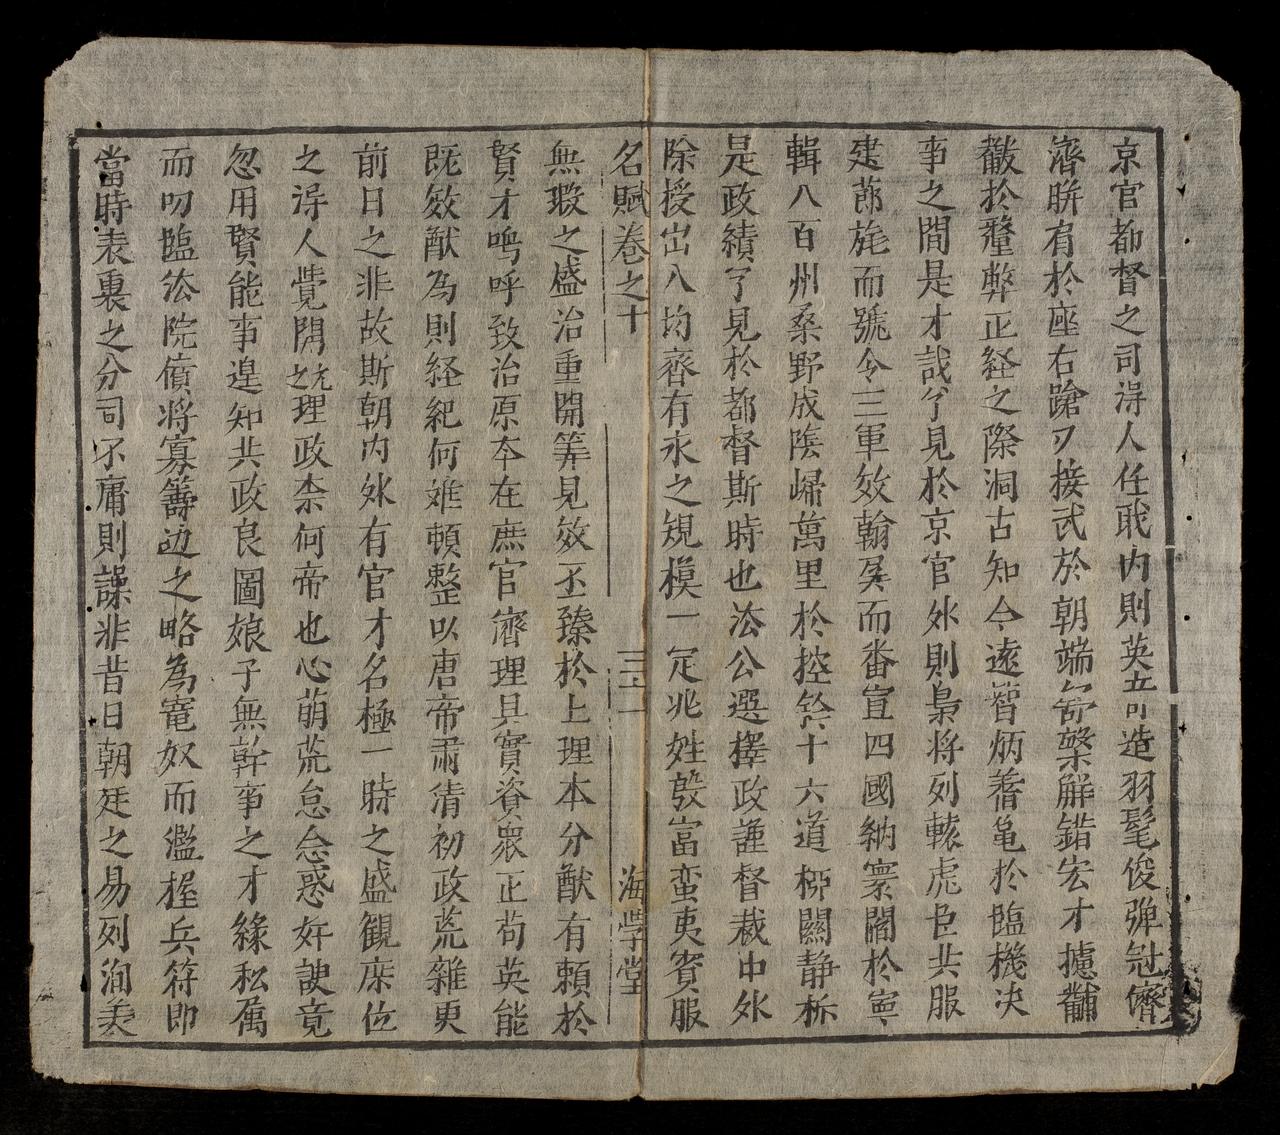 京官都督之司淂人任耽内則英五可造羽髦俊弹冠儕
濟聨肩於座右蹌刃接武於朝端舒檠觧錯宏才攄黼
黻於釐弊正経之際洞古知今遠智炳蓍亀於臨機决
事之間是才哉兮見於京官外則梟将列轅虎臣共服
建莭旄而號令三軍效翰矣而畨宣四國納寰闊於寧
輯八百州桑野成陰歸萬里於控鈴十六道栁闗静柝
是政績兮見於都督斯時也汯公選擇政謹督裁中外
除授出入均齊有永之䂓模一㝎兆姓殷富蛮夷賓服
名賦卷之十 三十一 海學堂
無瑕之盛治重開筭見效丕臻於上理本分猷有頼於
賢才嗚呼致治原夲在庶官濟理具實資衆正苟英能
既效猷為則経紀何难頓整以唐帝肅清初政荒雜更
前日之非故斯朝内外有官才名極一時之盛観庶位
之淂人覺開元之理政柰何帝也心萌荒怠念惑奸諛竟
忽用賢能事遑知共政良圖娘子無幹事之才縁私属
而叨臨汯院僨将寡籌边之略為寵奴而濫握兵符即
當時表裏之分司不庸則謀非昔日朝廷之易列洵美